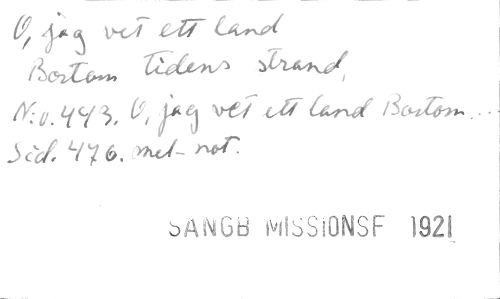 O, jag vet ett land
Bortom tidens strand,
N:o. 443. O, jag vet ett land Bortom....
Sid. 476. mel- not.
SANGB MISSIONSF 1921